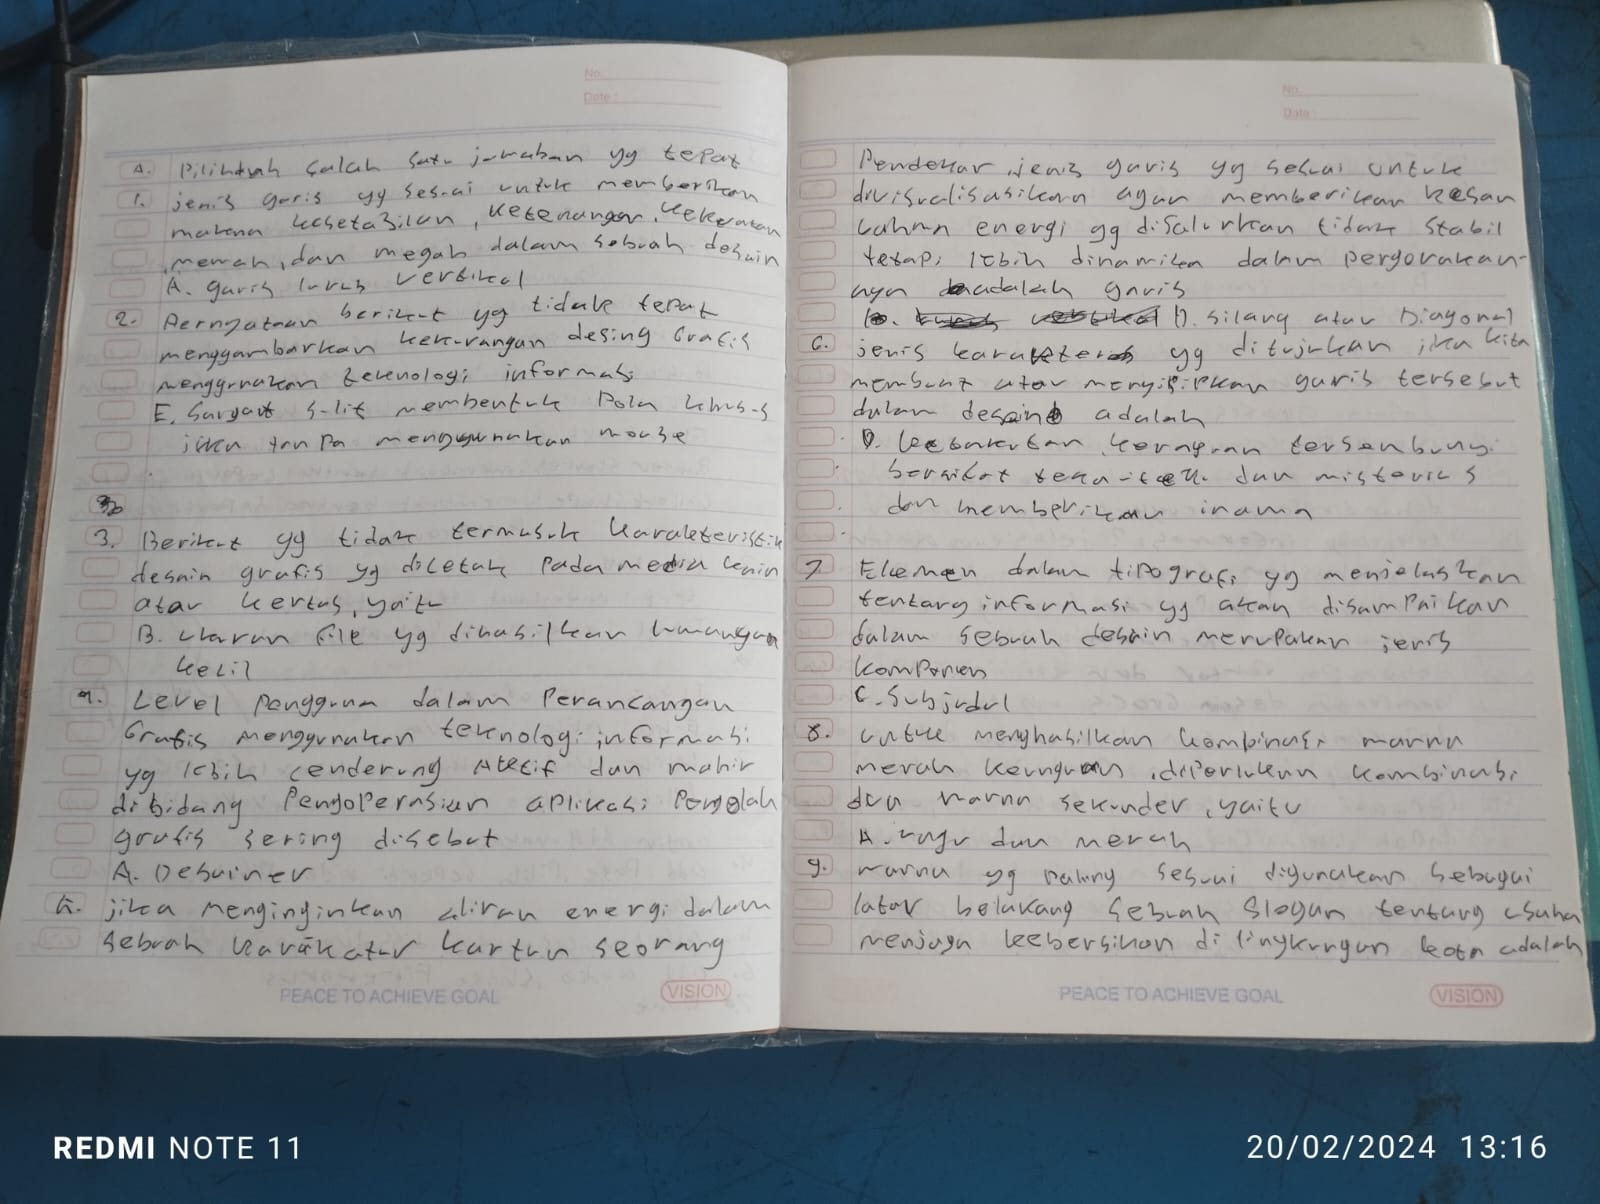 No.
Date :
A. Pilihlah salah satu jawaban yg tepat
1. jenis garis yg sesuai untuk memberikan
makna kesetabilan, ketenangan, kekuatan
mewah, dan megah dalam sebuah desain
A. garis lurus vertikal
2. Pernyataan berikut yg tidak tepat
menggambarkan kekurangan desing Grafis
menggunakan teknologi informasi
E. Sangat sulit membentuk Pola khusus
jika tanpa menggunakan mouse
3. Berikut yg tidak termasuk karakteristik
desain grafis yg dicetak pada media kain
atau kertas, yaitu
B. ukuran file yg dihasilkan
kecil
4. Level Pengguna dalam Perancangan
Grafis menggunakan teknologi informasi
yg lebih cenderung Aktif dan mahir
dibidang Pengoperasian aplikasi Pengolah
grafis sering disebut
A. Desainer
5. jika menginginkan aliran energi dalam
sebuah karakatur kartun seorang
PEACE TO ACHIEVE GOAL
VISION
No.
Date :
Pendekar, jenis garis yg sesuai untuk
divisualisasikan agar memberikan kesan
bahwa energi yg disalurkan tidak stabil
tetapi lebih dinamika dalam pergerakan-
nya adalah garis
D. silang atau Diagonal
6. jenis karakter yg ditujukan jika kita
membuat atau menyisipkan garis tersebut
dalam desain adalah
D. tersembunyi
bersifat teka-teki dan misterius
dan memberikan irama
7 Elemen dalam tipografi yg menjelaskan
tentang informasi yg akan disampaikan
dalam sebuah desain merupakan jenis
komponen
C. Subjudul
8. untuk menghasilkan kombinasi warna
merah keunguan, diperlukan kombinasi
dua warna sekunder, yaitu
A. ungu dan merah
9. warna yg paling sesuai digunakan sebagai
latar belakang sebuah slogan tentang usaha
menjaga kebersihan di lingkungan kota adalah
PEACE TO ACHIEVE GOAL
VISION
REDMI NOTE 11
20/02/2024 13:16